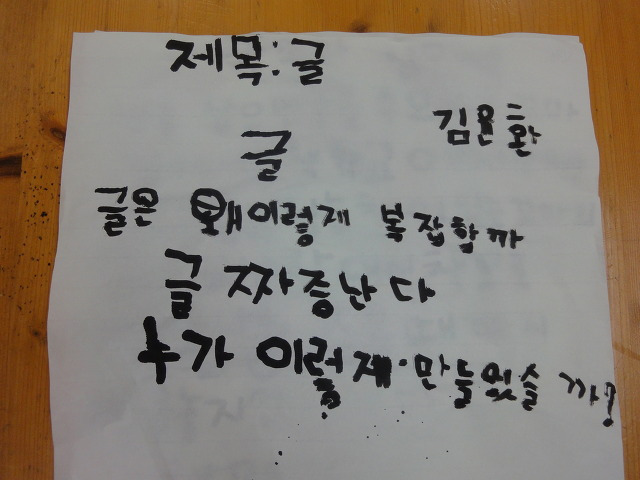 제목:글
김윤환
글
글은 왜이렇게 복잡할까
글 짜증난다
누가 이렇게 만들었슬까?